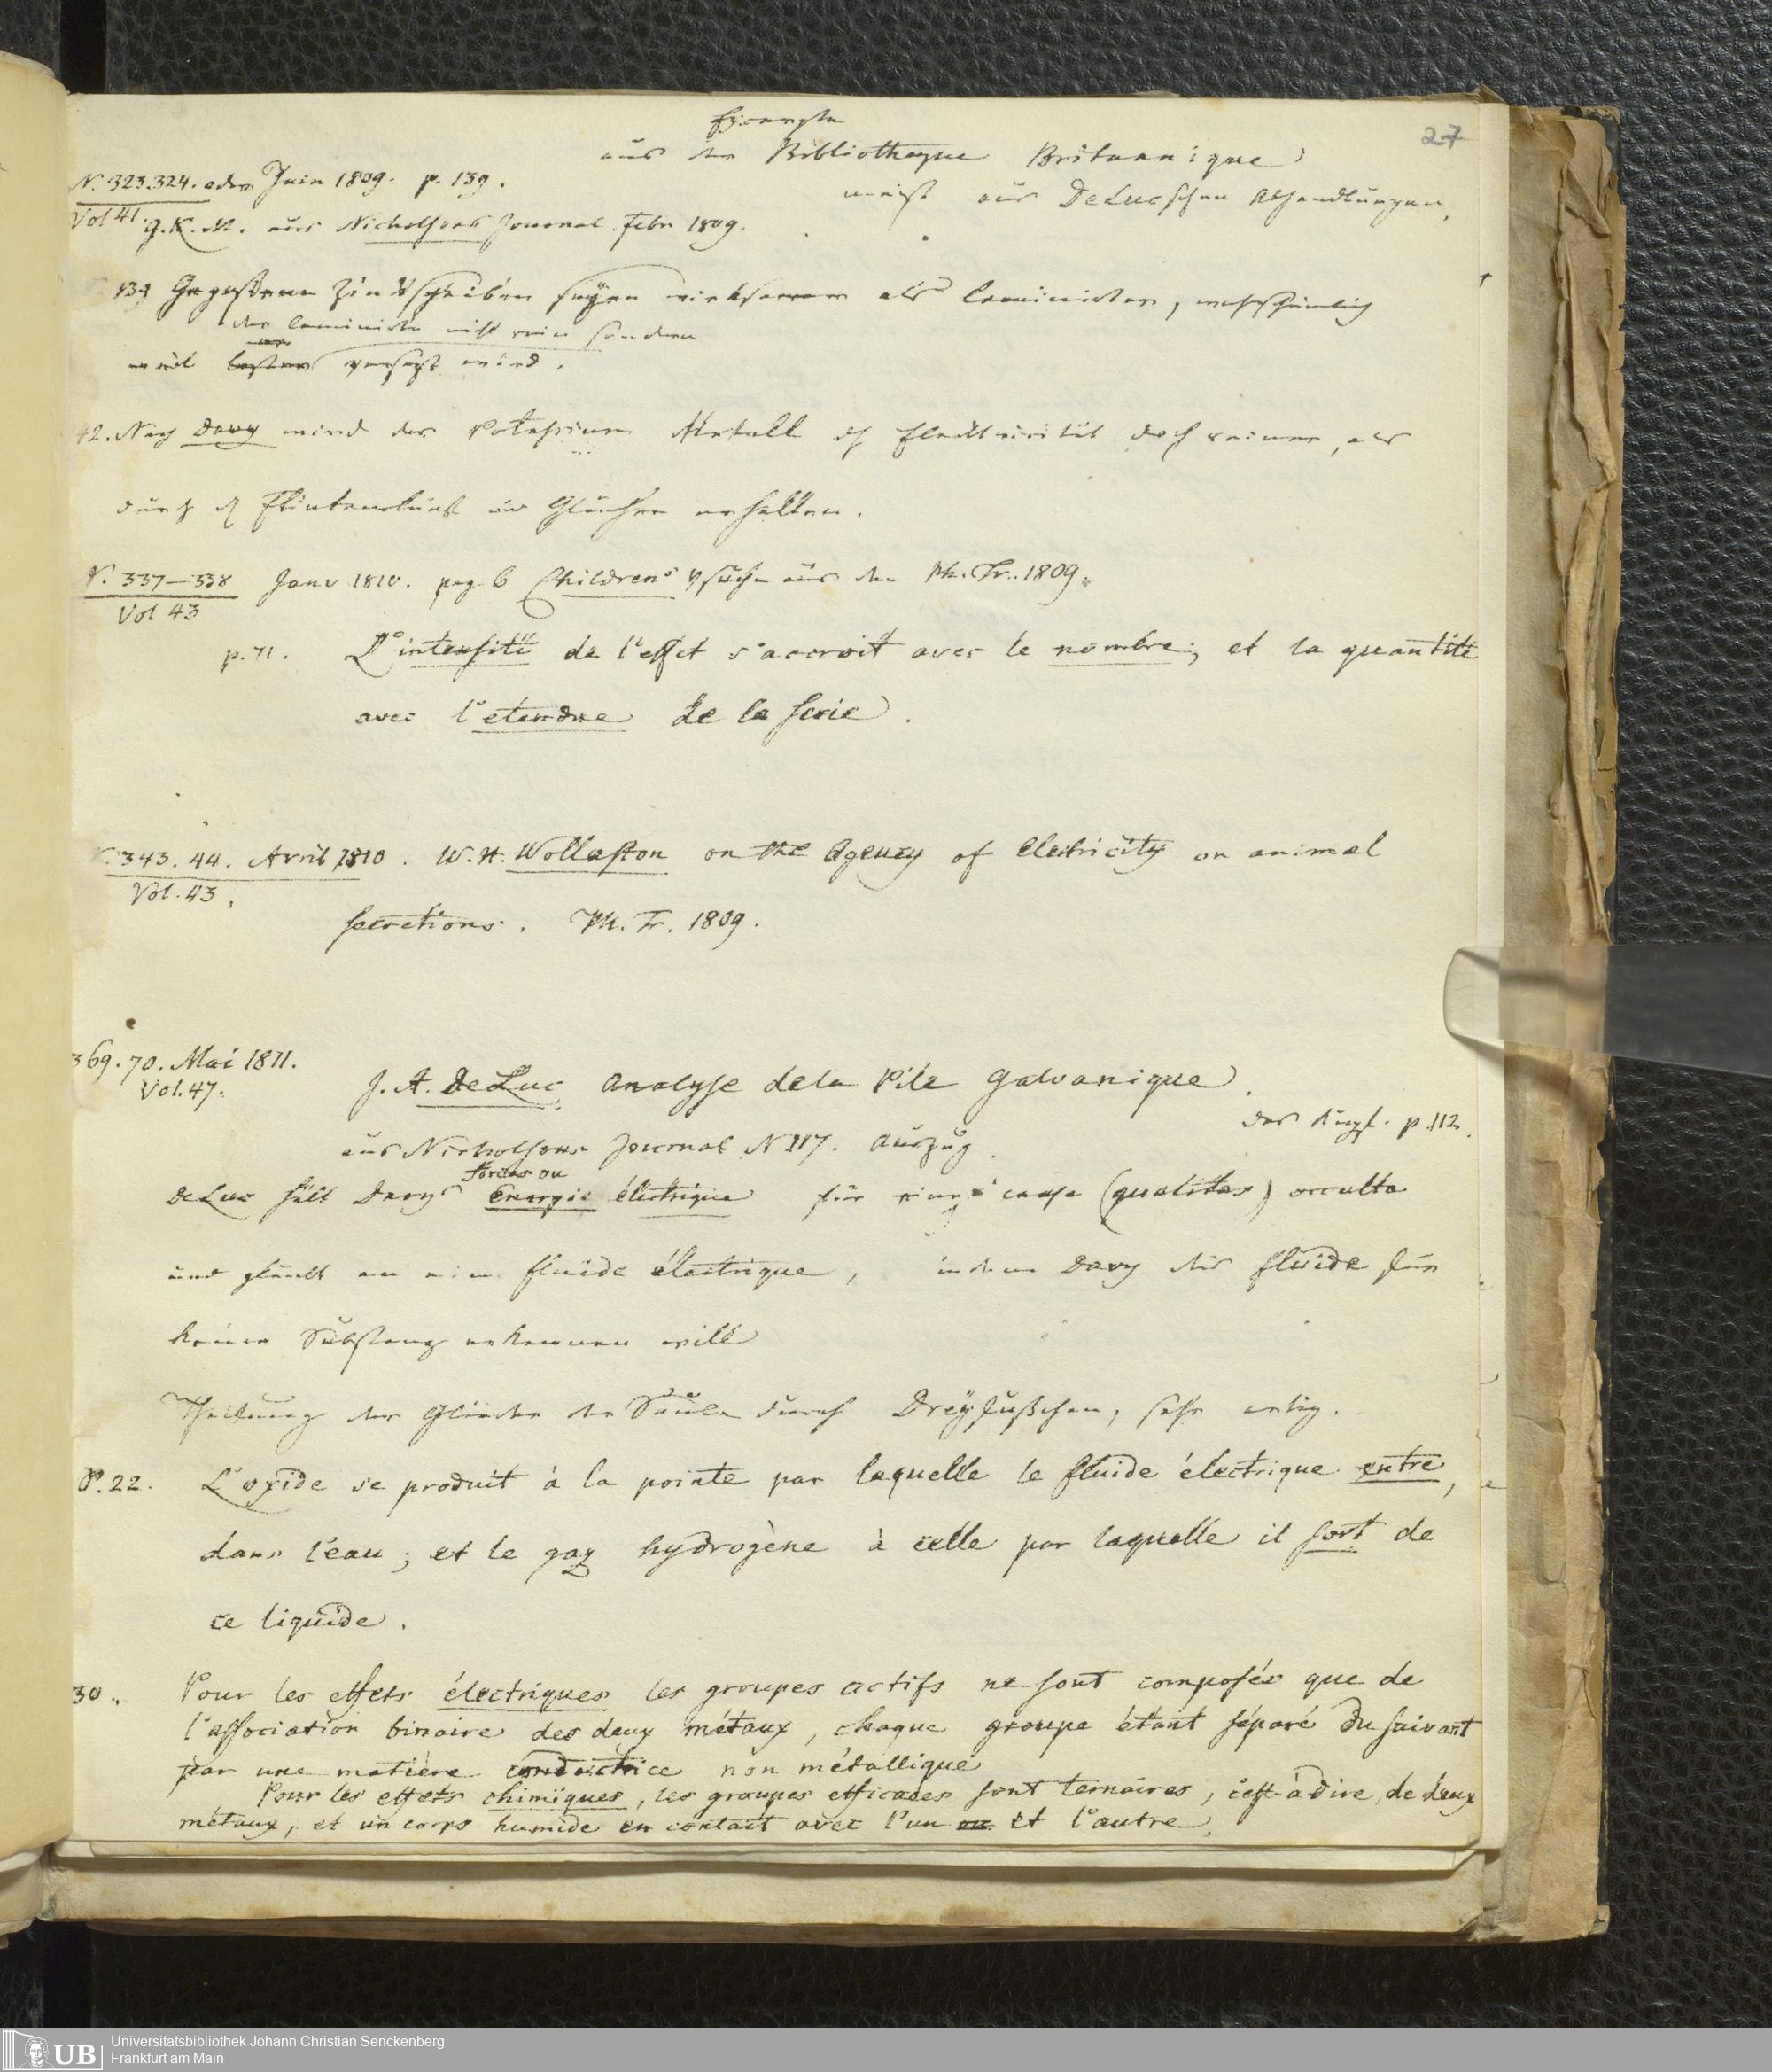 Excerpte
27
aus der Bibliotheque Britannique
N. 323.324. oder Juin 1809. p. 139.
meist aus DeLucschen Abhandlungen,
Vol 41. aus Nicholsons Journal. Febr 1809.
139 Gegossene Zinkscheiben seyen wirksamer als laminirten, wahrscheinlich
das laminirte nicht rein sondern
weil versezt wird.
42. Nach Davy wird das Potassium Metall Electricität doch reiner, als
durch Flintenlauf erhalten.
N. 337–338 Janv 1810. pag 6 Childrens Vsuche aus den Ph. Tr. 1809.
Vol 43
p. 71. L'intensité de l'effet s'accroit avec le nombre; et la quantité
avec l'etendue de la serie.
N. 343. 44. Avril 1810. W. H. Wollaston on the Agency of Electricity on animal
Vol. 43,
secretions. Ph. Tr. 1809.
369. 70. Mai 1811.
Vol. 47.
J. A. DeLuc Analyse de la Pile Galvanique.
p. 112.
aus Nicholsons Journal N 117. Auszug.
forces ou
DeLuc hält Davys Energie électrique für eine causa (qualitas) occulta
und glaubt an ein fluide électrique, indem Davy dies fluide für
keine Substanz erkennen will
Theilung der Glieder der Säule durch Dreyfüßchen, sehr artig.
P. 22. L'oxide se produit à la pointe par laquelle le fluide électrique entre,
dans l'eau; et le gaz hydrogène à celle par laquelle il sort de
ce liquide.
30. Pour les effets électriques les groupes actifs ne sont composés que de
l'association binaire des deux métaux, chaque groupe étant séparé du suivant
par une matière conductrice non métallique
Pour les effets chimiques, les groupes efficaces sont ternaires, c'est-à-dire, de deux
métaux, et un corps humide en contact avec l'un ou et l'autre.
UB Universitätsbibliothek Johann Christian Senckenberg
Frankfurt am Main